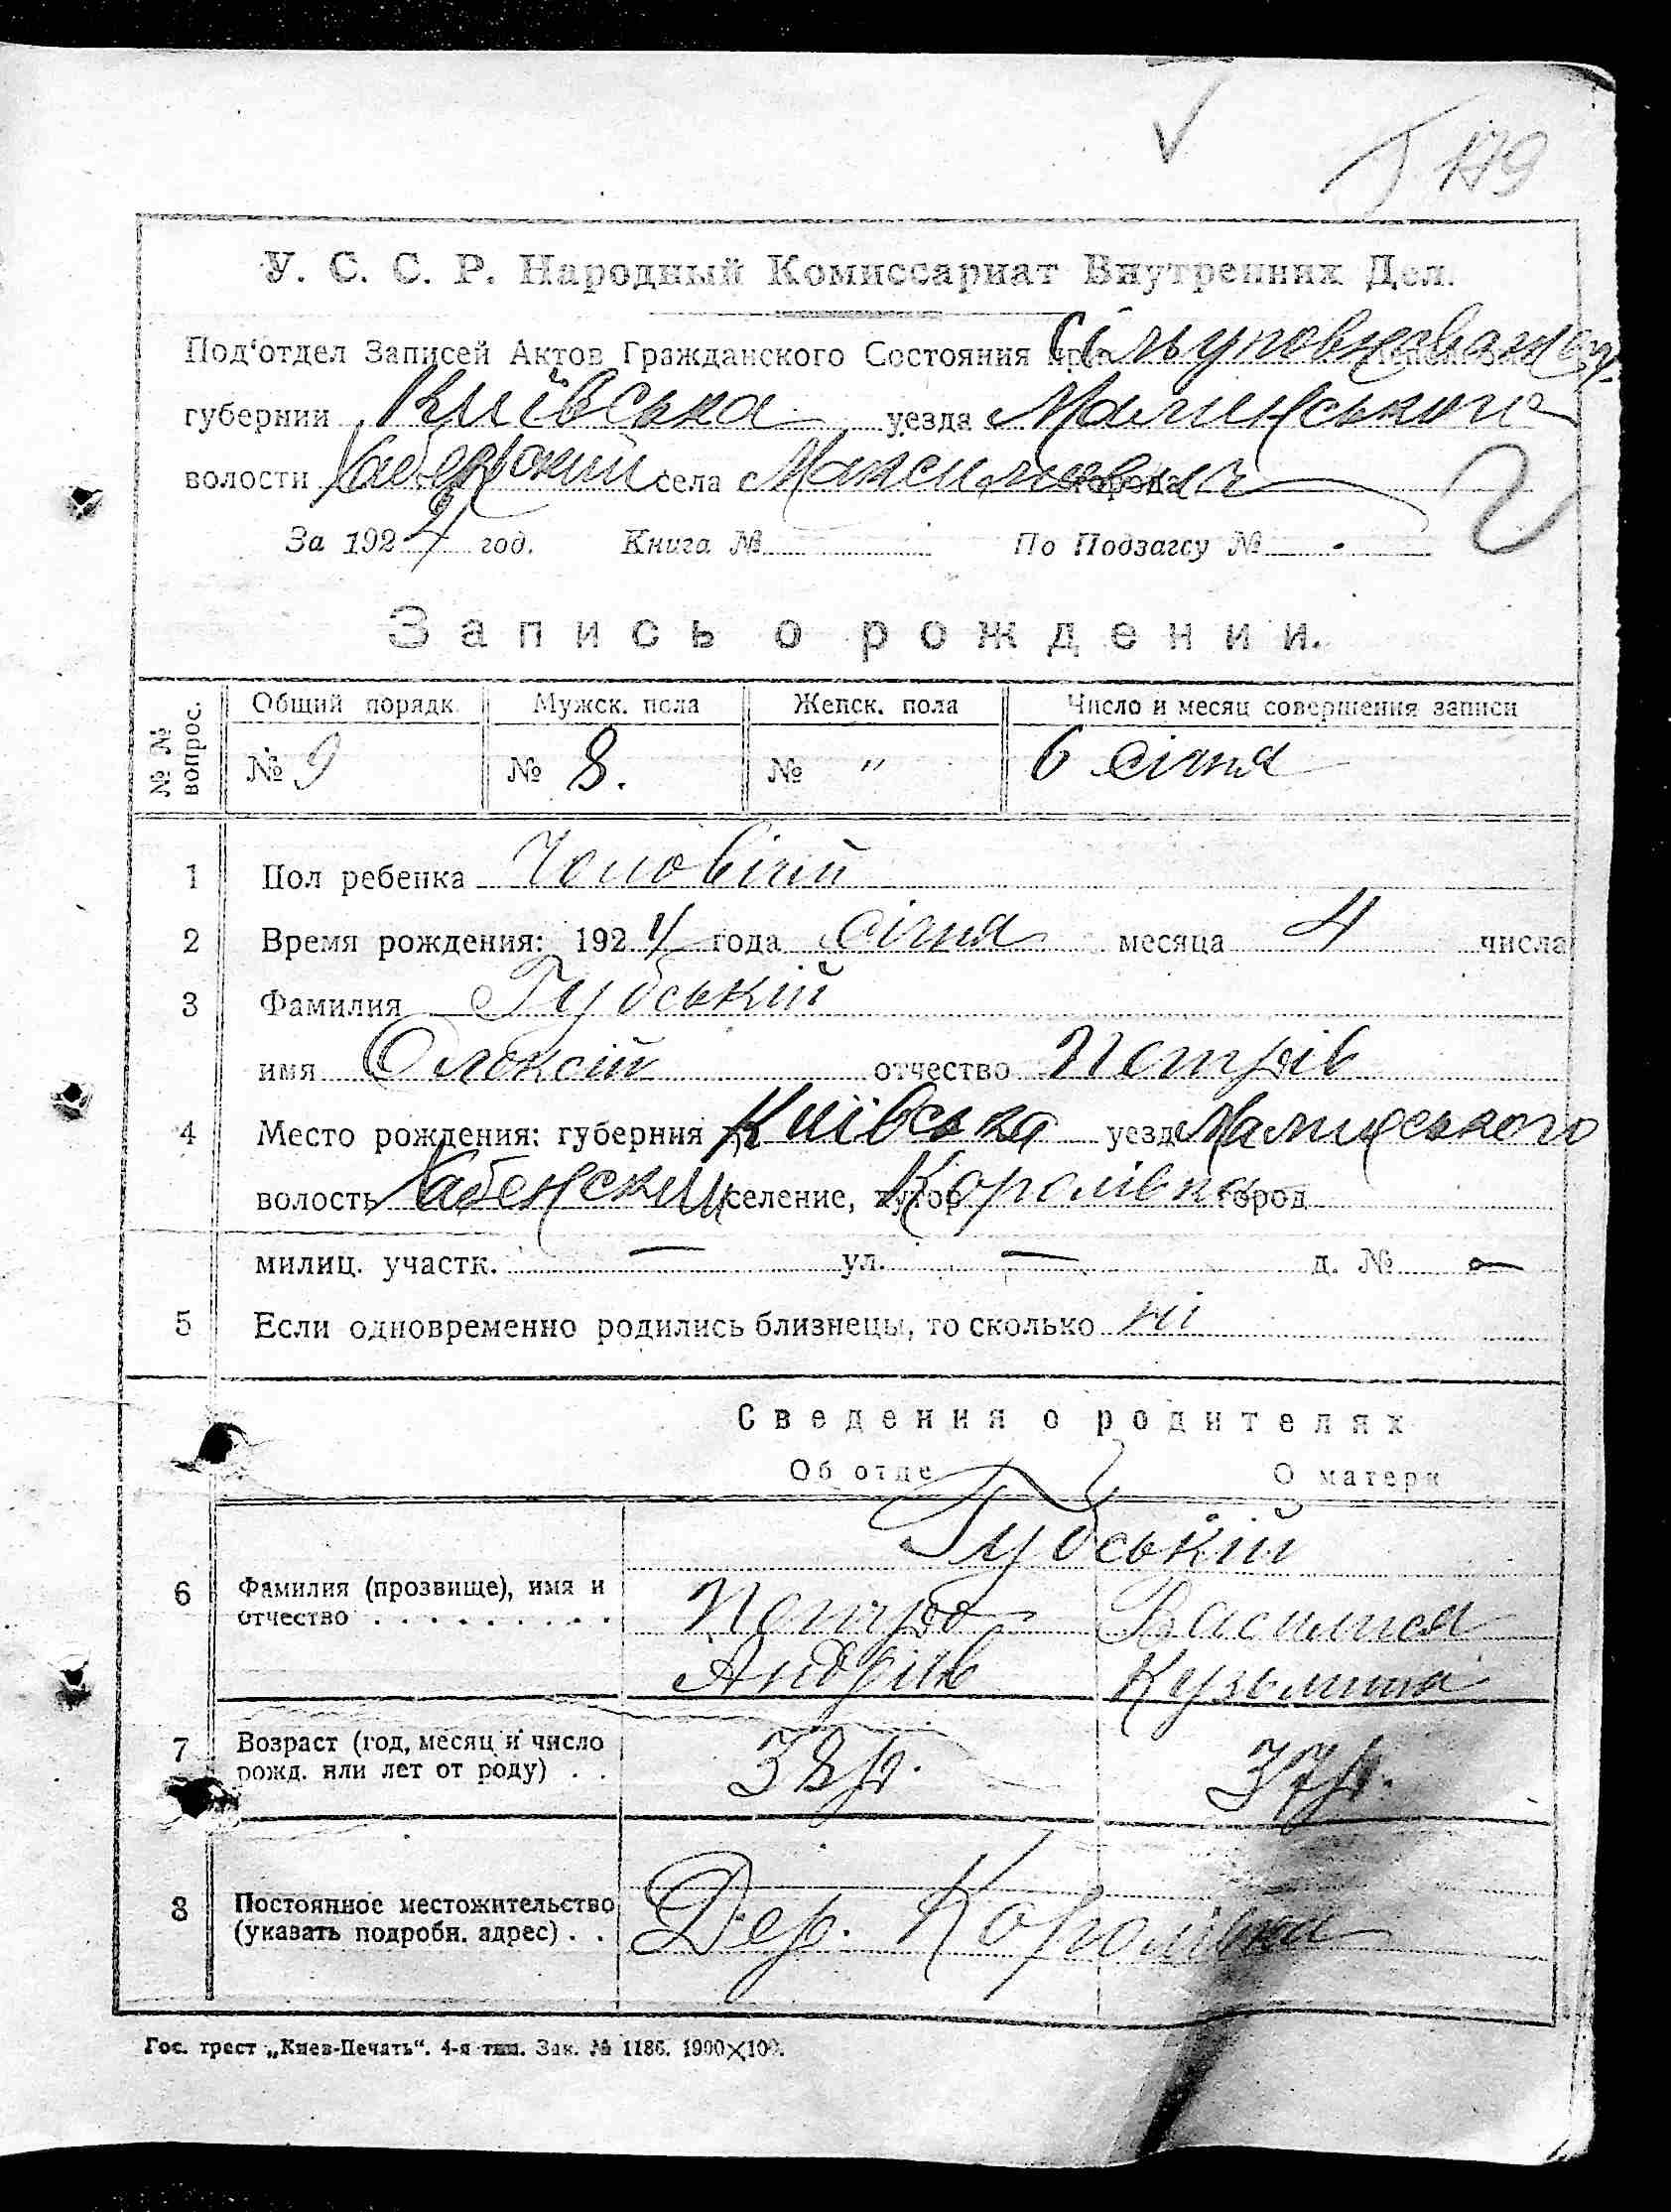 179
У. С. С. Р. Народный Комиссариат Внутренних Дел.
Под'отдел Записей Актов Гражданского Состояния при
губернии Київська уезда Малинського
волости Хабенский села Максимовка города
За 1924 год. Книга № По Подзагсу №
Запись о рождении.
№ № вопрос. Общий порядк. Мужск. пола Женск. пола Число и месяц совершения записи
№ 9 № 8. № " 6 січня
1 Пол ребенка Чоловічій
2 Время рождения: 1924 года січня месяца 4 числа
3 Фамилия Губській
имя Олексій отчество Петрів
4 Место рождения: губерния Київська уезд Малинського
волость Хабенский селение, хутор Королівка город
милиц. участк. — ул. — д. № —
5 Если одновременно родились близнецы, то сколько ні
Сведения о родителях
Об отце О матери
Губській
6 Фамилия (прозвище), имя и Петро Василися
отчество . . . . . . . . . Андріїв Кузьмина
7 Возраст (год, месяц и число 38 р. 37 р.
рожд. или лет от роду) . .
8 Постоянное местожительство Дер. Королівка
(указать подробн. адрес) . .
Гос. трест „Киев-Печать". 4-я тип. Зак. № 1186. 1900×100.